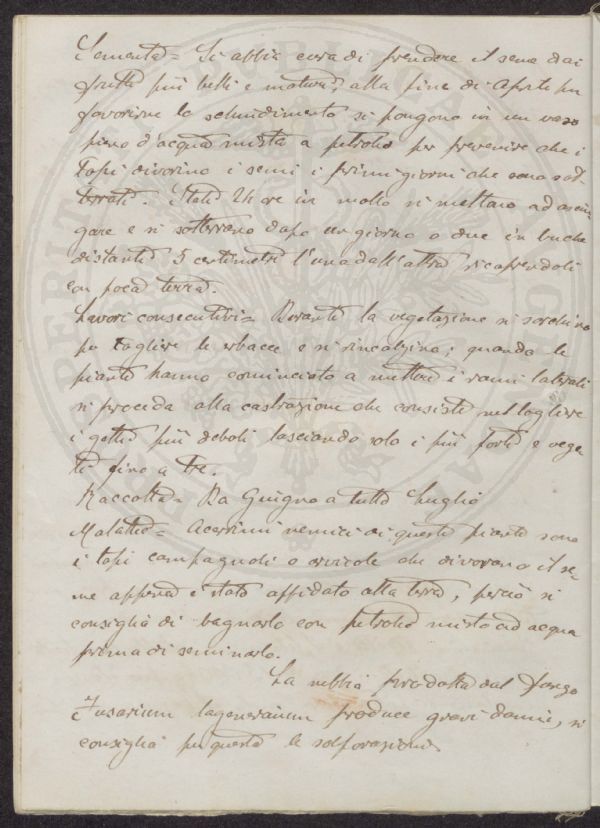 Sementa = Si abbia cura di prendere il seme dai
frutti più belli e maturi, alla fine di Aprile per
favorirne lo schiudimento si pongono in un vaso
pieno d'acqua mista a petrolio per prevenire che i
topi divorino i semi i primi giorni che sono sot-
terrati. Stati 24 ore in mollo si mettano ad asciu-
gare e si sotterrano dopo un giorno o due in buche
distanti 5 centimetri l'una dall'altra ricoprendoli
con poca terra.
Lavori consecutivi = Durante la vegetazione si sarchino
per togliere le erbacce e si rincalzino; quando le
piante hanno cominciato a mettere i rami laterali
si proceda alla castrazione che consiste nel togliere
i getti più deboli lasciando solo i più forti e vege-
ti fino a tre.
Raccolta = Da Giugno a tutto Luglio
Malattie = Acerrimi nemici di queste piante sono
i topi campagnoli o arvicole che divorano il se-
me appena è stato affidato alla terra, perciò si
consiglia di bagnarlo con petrolio misto ad acqua
prima di seminarlo.
La nebbia prodotta dal fungo
Fusarium lagenarium produce gravi danni, si
consiglia per questa le solforazioni.